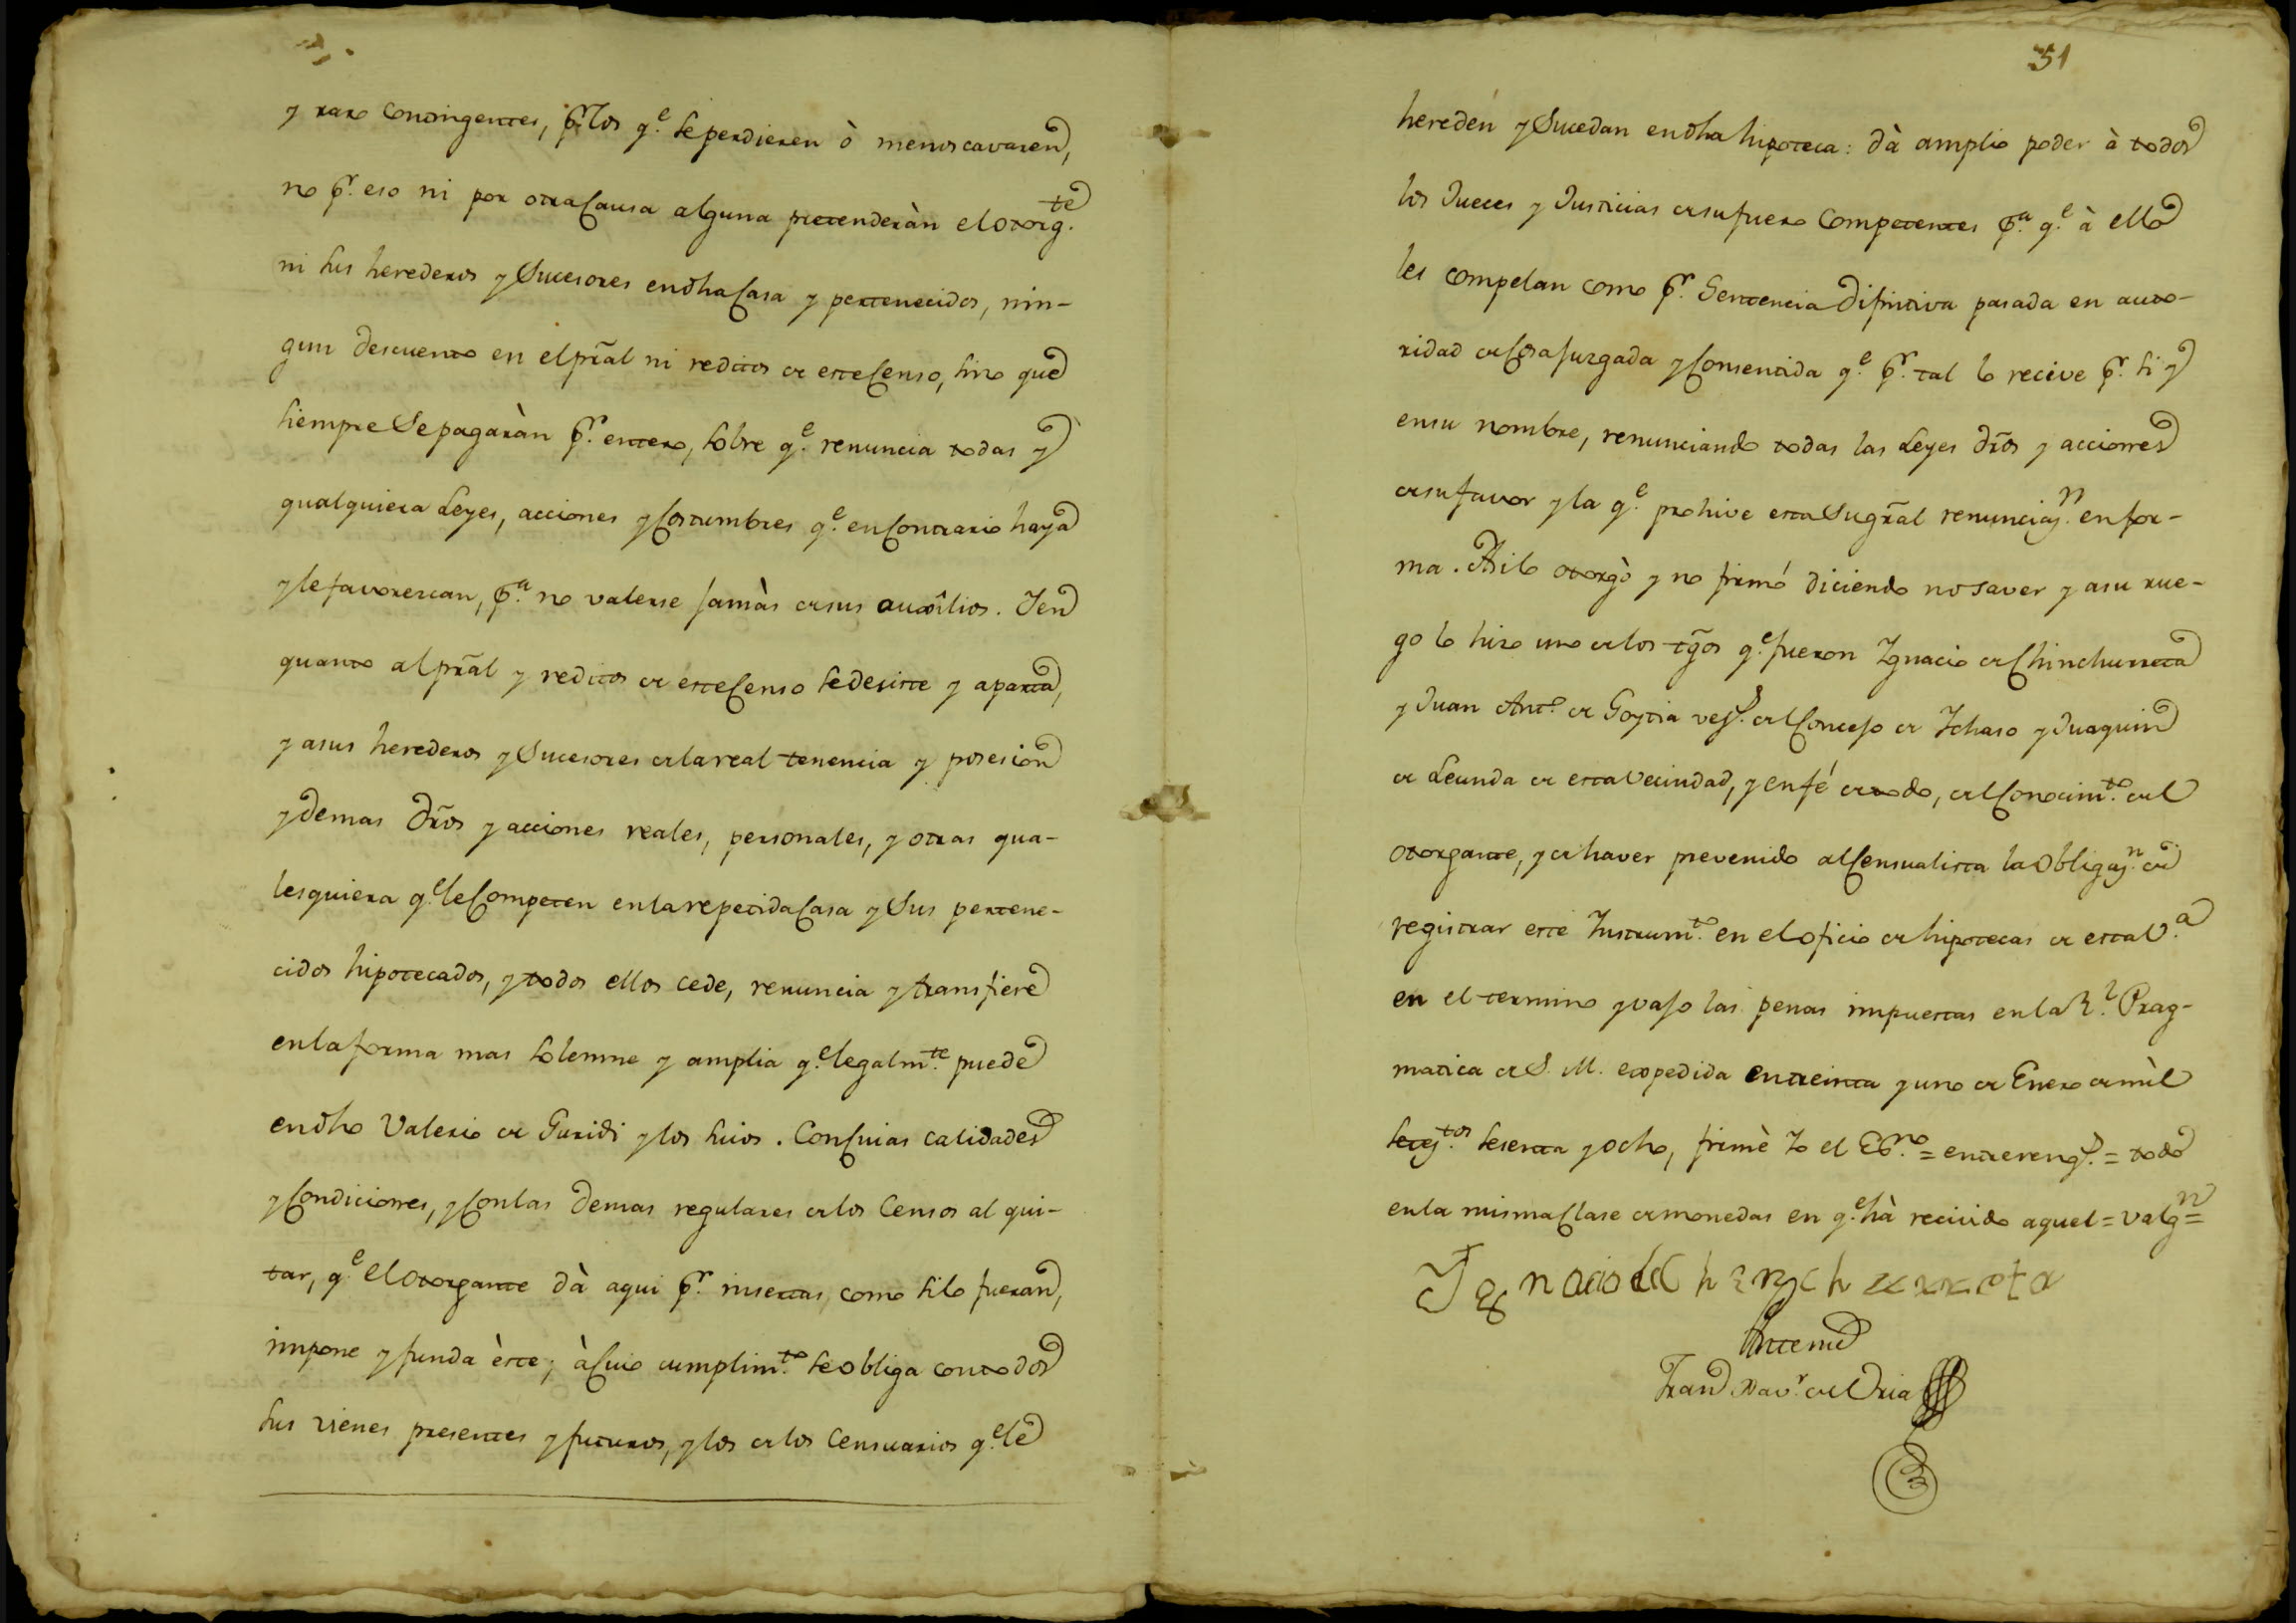 y raro contingentes, pr. los q.e se perdieren ò menoscavaren,
no pr. eso ni por otra Causa alguna pretenderàn el otorg.te
ni sus herederos y Sucesores en dha Casa y pertenecidos, nin-
gun descuento en el prãl ni reditos de este Censo, sino que
siempre Se pagaràn pr. entero, sobre q.e renuncia todas y
qualquiera Leyes, acciones y Costumbres q.e en Contrario haya
y le favorezcan, p.a no valerse jamàs de sus auxîlios. Y en
quanto al prãl y reditos de este Censo se desiste y aparta,
y a sus herederos y Sucesores de la real tenencia y posesion
y demas drõs y acciones reales, personales, y otras qua-
lesquiera q.e le Competen en la repetida Casa y Sus pertene-
cidos hipotecados, y todos ellos cede, renuncia y transfiere
en la forma mas solemne y amplia q.e legalm.te puede
en dho Valerio de Guridi y los suios. Con Cuias calidades
y Condiciones, y Con las demas regulares de los Censos al qui-
tar, q.e el Otorgante dà aqui pr. insertas, como si lo fueran,
impone y funda èste; à Cuio cumplim.to se obliga con todos
sus vienes presentes y futuros, y los de los Censuarios q.e le
51
hereden y Sucedan en dha hipoteca: dà amplio poder à todos
los Jueces y Justicias de su fuero Competentes p.a q.e à ello
les compelan como pr. Sentencia difinitiva pasada en auto-
ridad de Cosa juzgada y Consentida q.e pr. tal lo recive pr. si y
en su nombre, renunciando todas las Leyes drõs y acciones
de su favor y la q.e prohive esta Su grãl renunciaz.n en for-
ma. Asi lo otorgò y no firmó diciendo no saver y a su rue-
go lo hizo uno de los tg̃os q.e fueron Ignacio de Chinchurreta
y Juan Ant.o de Goytia vez.s del Concejo de Ichaso y Juaquin
de Leunda de esta Vecindad, y en fé de todo, del Conocim.to del
otorgante, y de haver prevenido al Censualista la Obligaz.n de
registrar este Instrum.to en el oficio de hipotecas de esta V.a
en el termino y vajo las penas impuestas en la R.l Prag-
matica de S. M. expedida en treinta y uno de Enero de mìl
setez.tos sesenta y ocho, firmè Yo el Es.no = entrereng.s = todo
en la misma Clase de monedas en q.e hà recivido aquel = valg.n =
Ignacio de Chinchurreta
Ante mi
Fran.co Xav.r de Oria